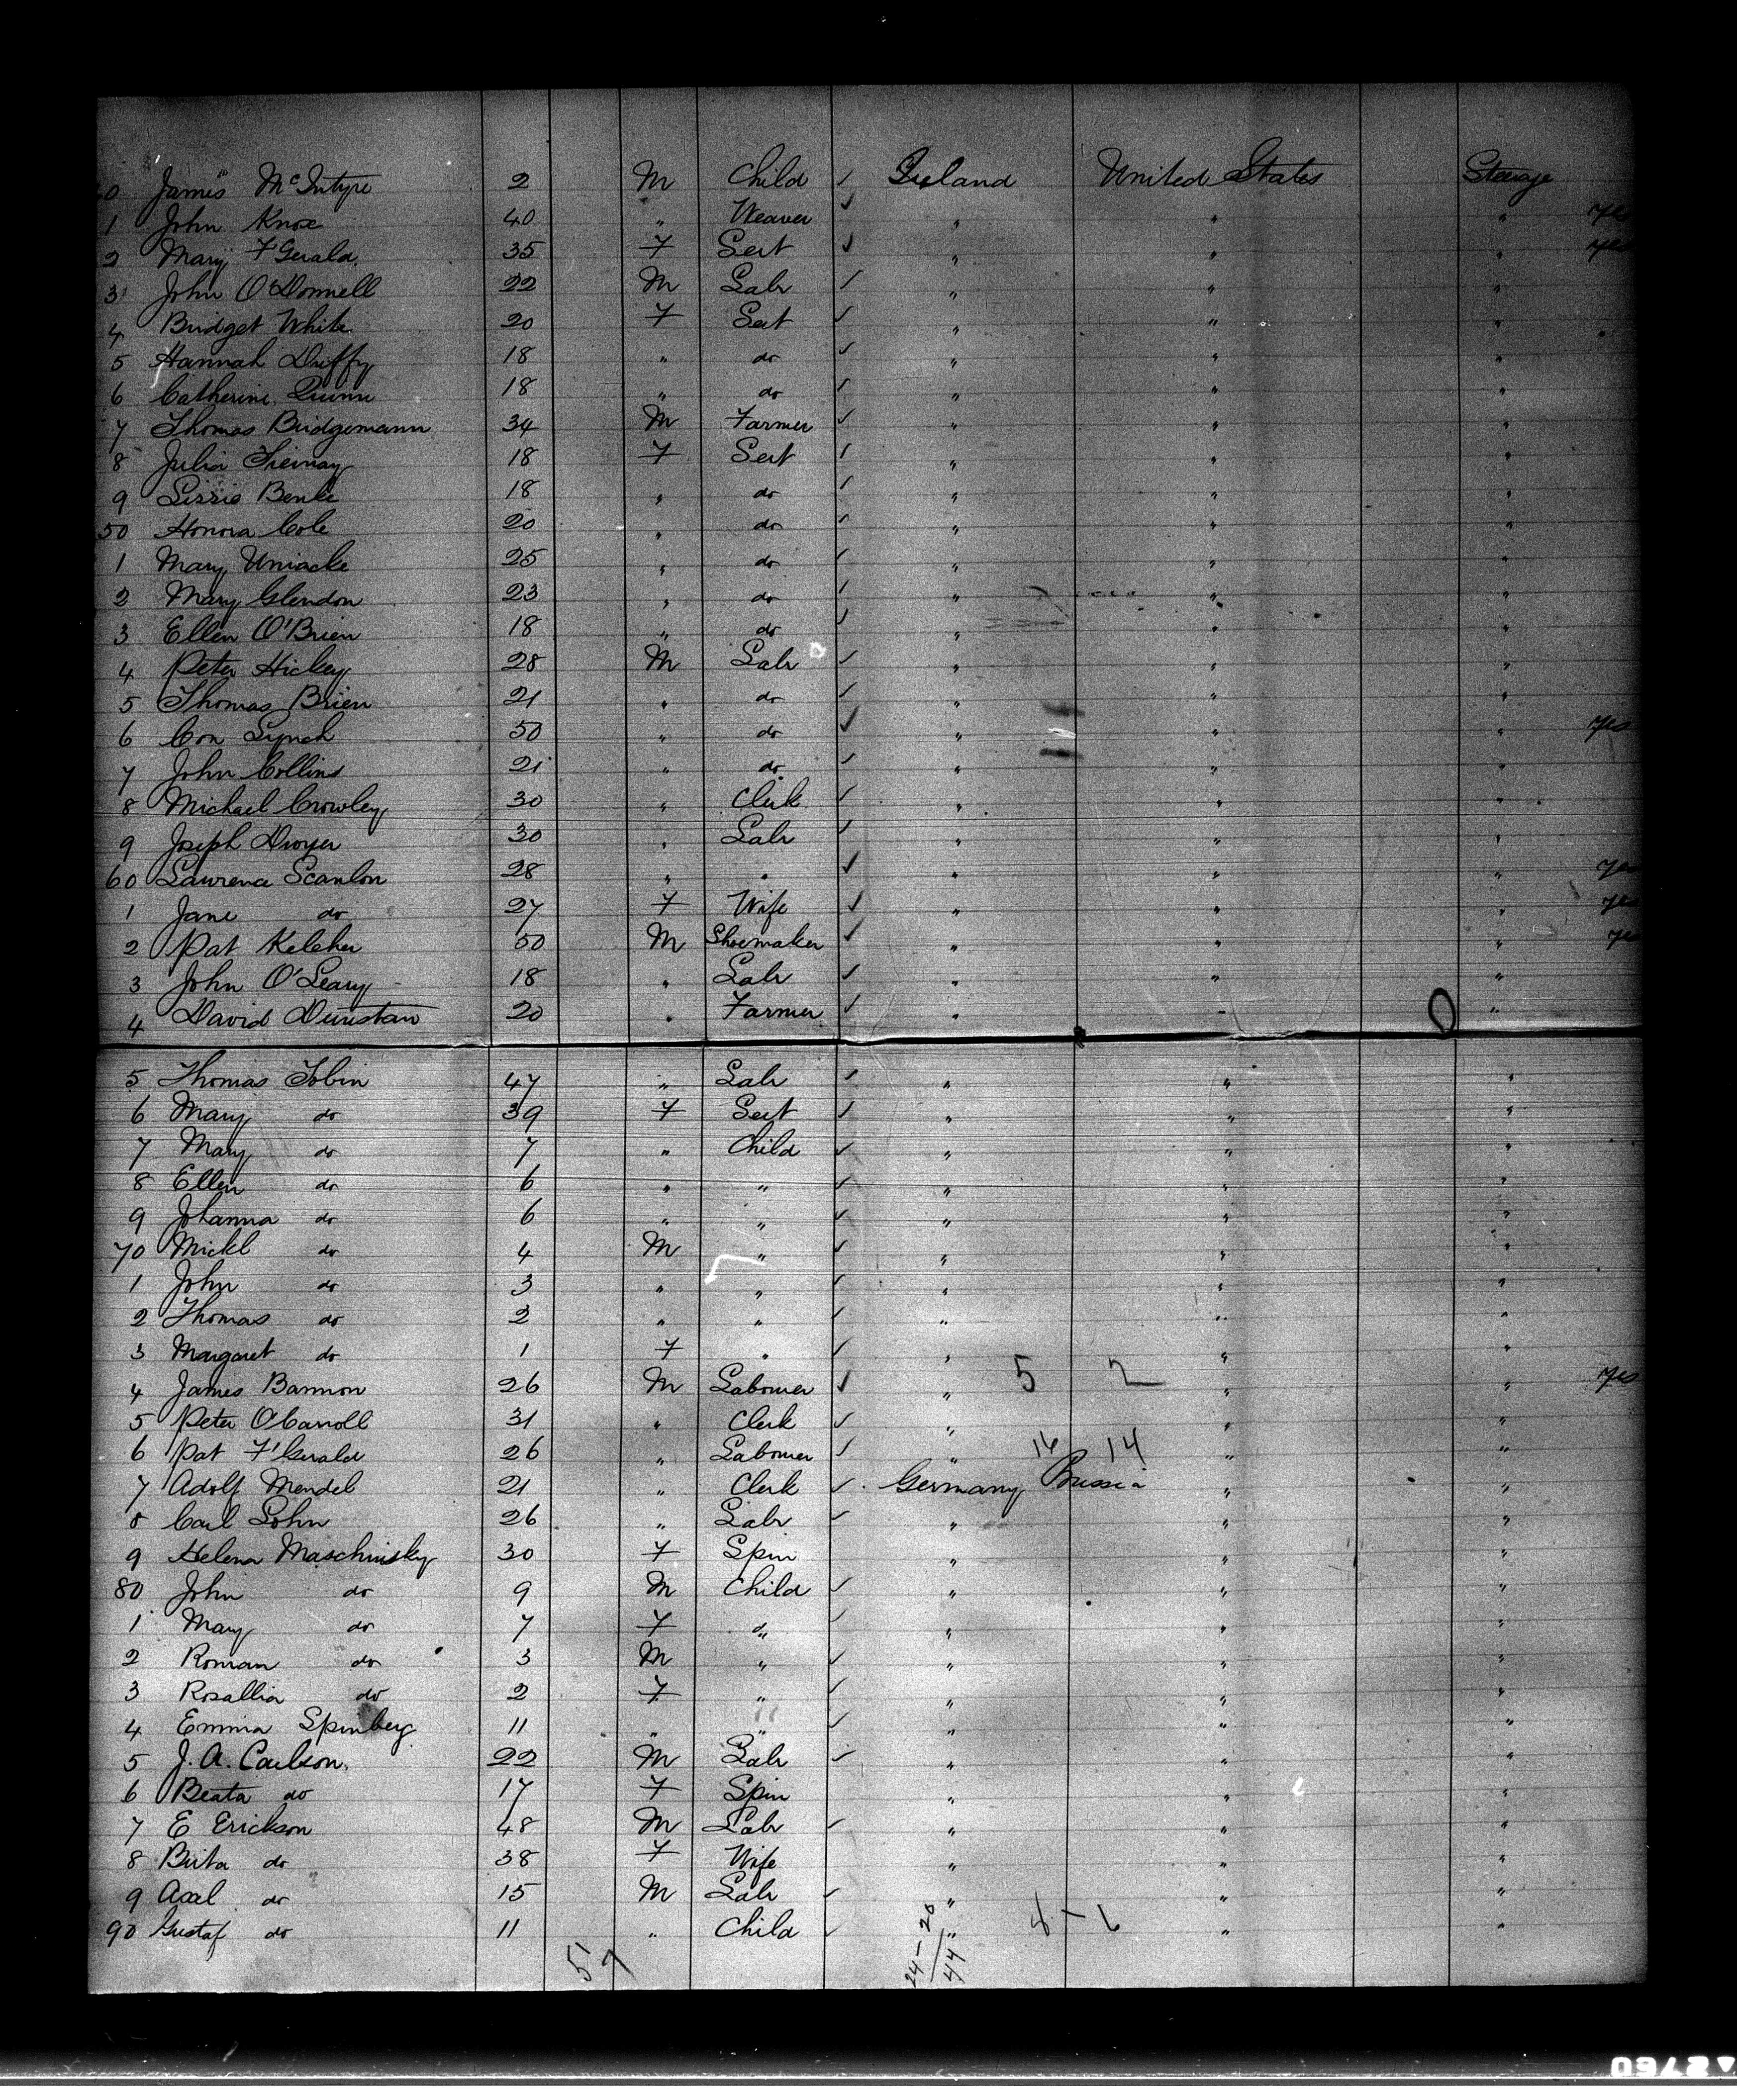 0 James McIntyre 2 M Child ✓ Ireland United States Steerage
1 John Knox 40 " Weaver ✓ " " " yes
2 Mary F'Gerald 35 F Sert ✓ " " " yes
3 John O'Donnell 22 M Labr ✓ " " "
4 Bridget White 20 F Sert ✓ " " "
5 Hannah Duffy 18 " do ✓ " " "
6 Catherine Quinn 18 " do ✓ " " "
7 Thomas Bridgemann 34 M Farmer ✓ " " "
8 Julia 18 F Sert ✓ " " "
9 Lizzie 18 " do ✓ " " "
50 Honora Cole 20 " do ✓ " " "
1 Mary Uniacke 25 " do ✓ " " "
2 Mary Glendon 23 " do ✓ " " "
3 Ellen O'Brien 18 " do ✓ " " "
4 Peter Hickey 28 M Labr ✓ " " "
5 Thomas Brien 21 " do ✓ " " "
6 Con Lynch 50 " do ✓ " " " yes
7 John Collins 21 " do ✓ " " "
8 Michael Crowley 30 " Clerk ✓ " " "
9 Joseph Dwyer 30 " Labr ✓ " " "
60 Lawrence Scanlon 28 " " ✓ " " " yes
1 Jane do 27 F Wife ✓ " " " yes
2 Pat Keleher 50 M Shoemaker ✓ " " " yes
3 John O'Leary 18 " Labr ✓ " " "
4 David Dunstan 20 " Farmer ✓ " " 0 "
5 Thomas Tobin 47 " Labr ✓ " " "
6 Mary do 39 F Sert ✓ " " "
7 Mary do 7 " Child ✓ " " "
8 Ellen do 6 " " ✓ " " "
9 Johanna do 6 " " ✓ " " "
70 Mickl do 4 M " ✓ " " "
1 John do 3 " " ✓ " " "
2 Thomas do 2 " " ✓ " " "
3 Margaret do 1 F " ✓ " " "
4 James Bannon 26 M Labourer ✓ " 5 2 " " yes
5 Peter O'Carroll 31 " Clerk ✓ " " "
6 Pat F'Gerald 26 " Labourer ✓ " 16 14 " "
7 Adolf Mendel 21 " Clerk ✓ Germany Prussia " "
8 Carl Sohn 26 " Labr ✓ " " "
9 Helena Maschinsky 30 F Spin " " "
80 John do 9 M Child ✓ " " "
1 Mary do 7 F " ✓ " " "
2 Roman do 3 M " ✓ " " "
3 Rosallia do 2 F " ✓ " " "
4 Emma Spinberg 11 " " ✓ " " "
5 J. A. Carlson 22 M Labr ✓ " " "
6 Beata do 17 F Spin " " "
7 E Erickson 48 M Labr ✓ " " "
8 Brita do 38 F Wife " " "
9 Axel do 15 M Labr ✓ " " "
90 Gustaf do 11 " Child ✓ " 8-6 " "
57 24-20 44
09782